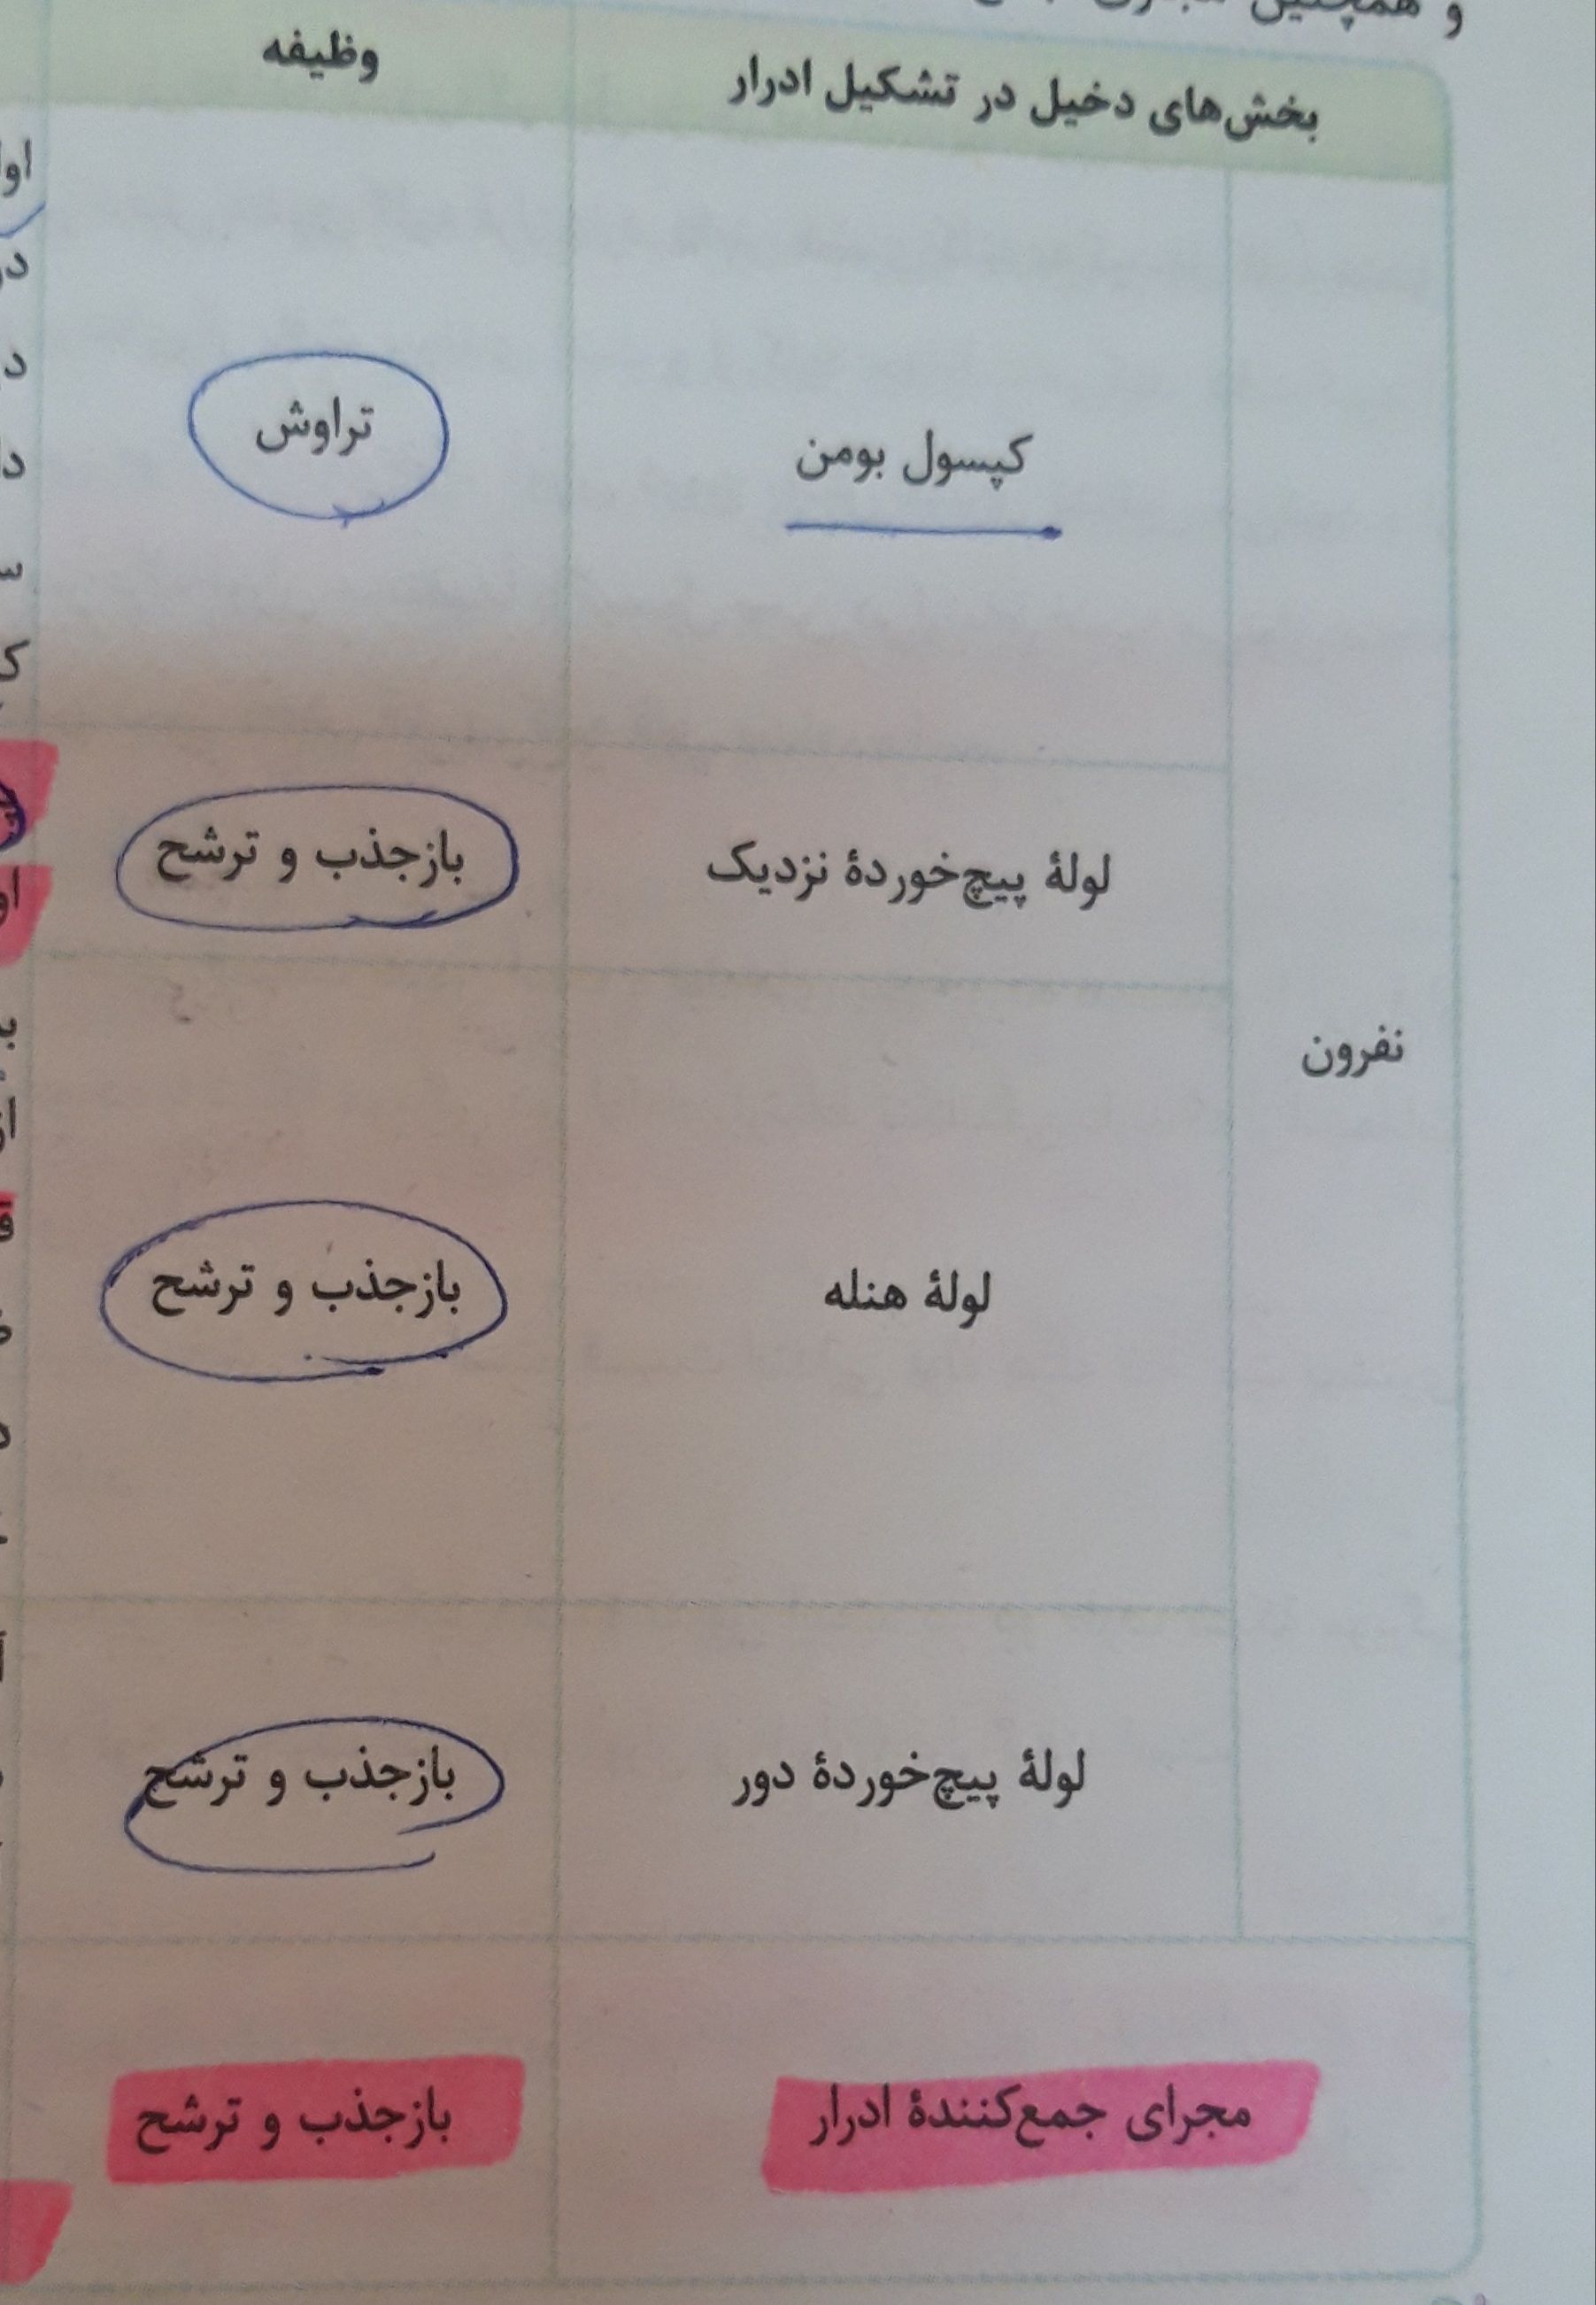 و همچنین
بخش‌های دخیل در تشکیل ادرار
وظیفه
نفرون
کپسول بومن
تراوش
لولهٔ پیچ‌خوردهٔ نزدیک
بازجذب و ترشح
لولهٔ هنله
بازجذب و ترشح
لولهٔ پیچ‌خوردهٔ دور
بازجذب و ترشح
مجرای جمع‌کنندهٔ ادرار
بازجذب و ترشح